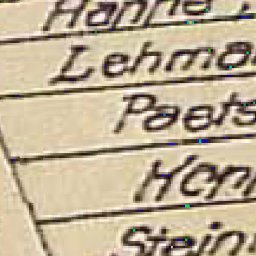 Hanne,
Lehma
Paets
Hen
Stein